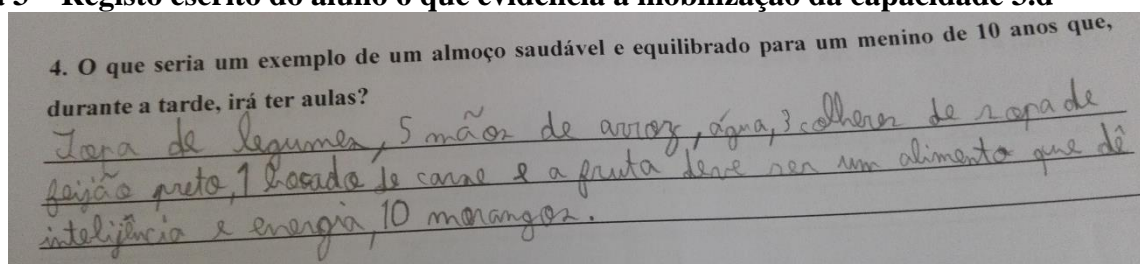 Registo escrito do aluno o que evidencia a mobilização da capacidade 3.d
4. O que seria um exemplo de um almoço saudável e equilibrado para um menino de 10 anos que,
durante a tarde, irá ter aulas?
Sopa de legumes, 5 mãos de arroz, água, 3 colheres de sopa de
feijão preto, 1 bocado de carne e a fruta deve ser um alimento que dê
intelijência e energia, 10 morangos.